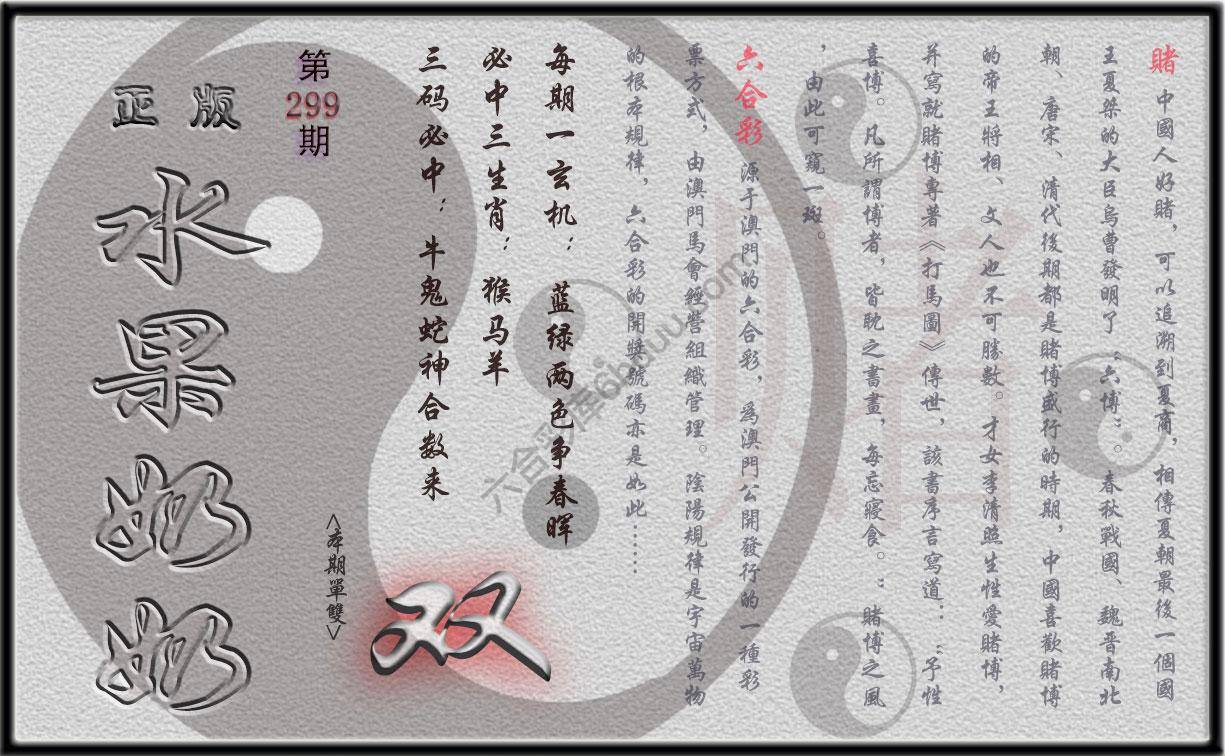 賭 中國人好賭，可以追溯到夏商，相傳夏朝最後一個國
王夏桀的大臣烏曹發明了“六博”。春秋戰國、魏晉南北
朝、唐宋、清代後期都是賭博盛行的時期，中國喜歡賭博
的帝王將相、文人也不可勝數。才女李清照生性愛賭博，
并寫就賭博專著《打馬圖》傳世，該書序言寫道：“予性
喜博。凡所謂博者，皆耽之書畫，每忘寢食。”賭博之風
，由此可窺一斑。
六合彩 源于澳門的六合彩，爲澳門公開發行的一種彩
票方式，由澳門馬會經營組織管理。陰陽規律是宇宙萬物
的根本規律，六合彩的開獎號碼亦是如此……
每期一玄机：蓝绿两色争春晖
必中三生肖：猴马羊
三码必中：牛鬼蛇神合数来
第
299
期
<本期單雙>
双
正版
水果奶奶
賭